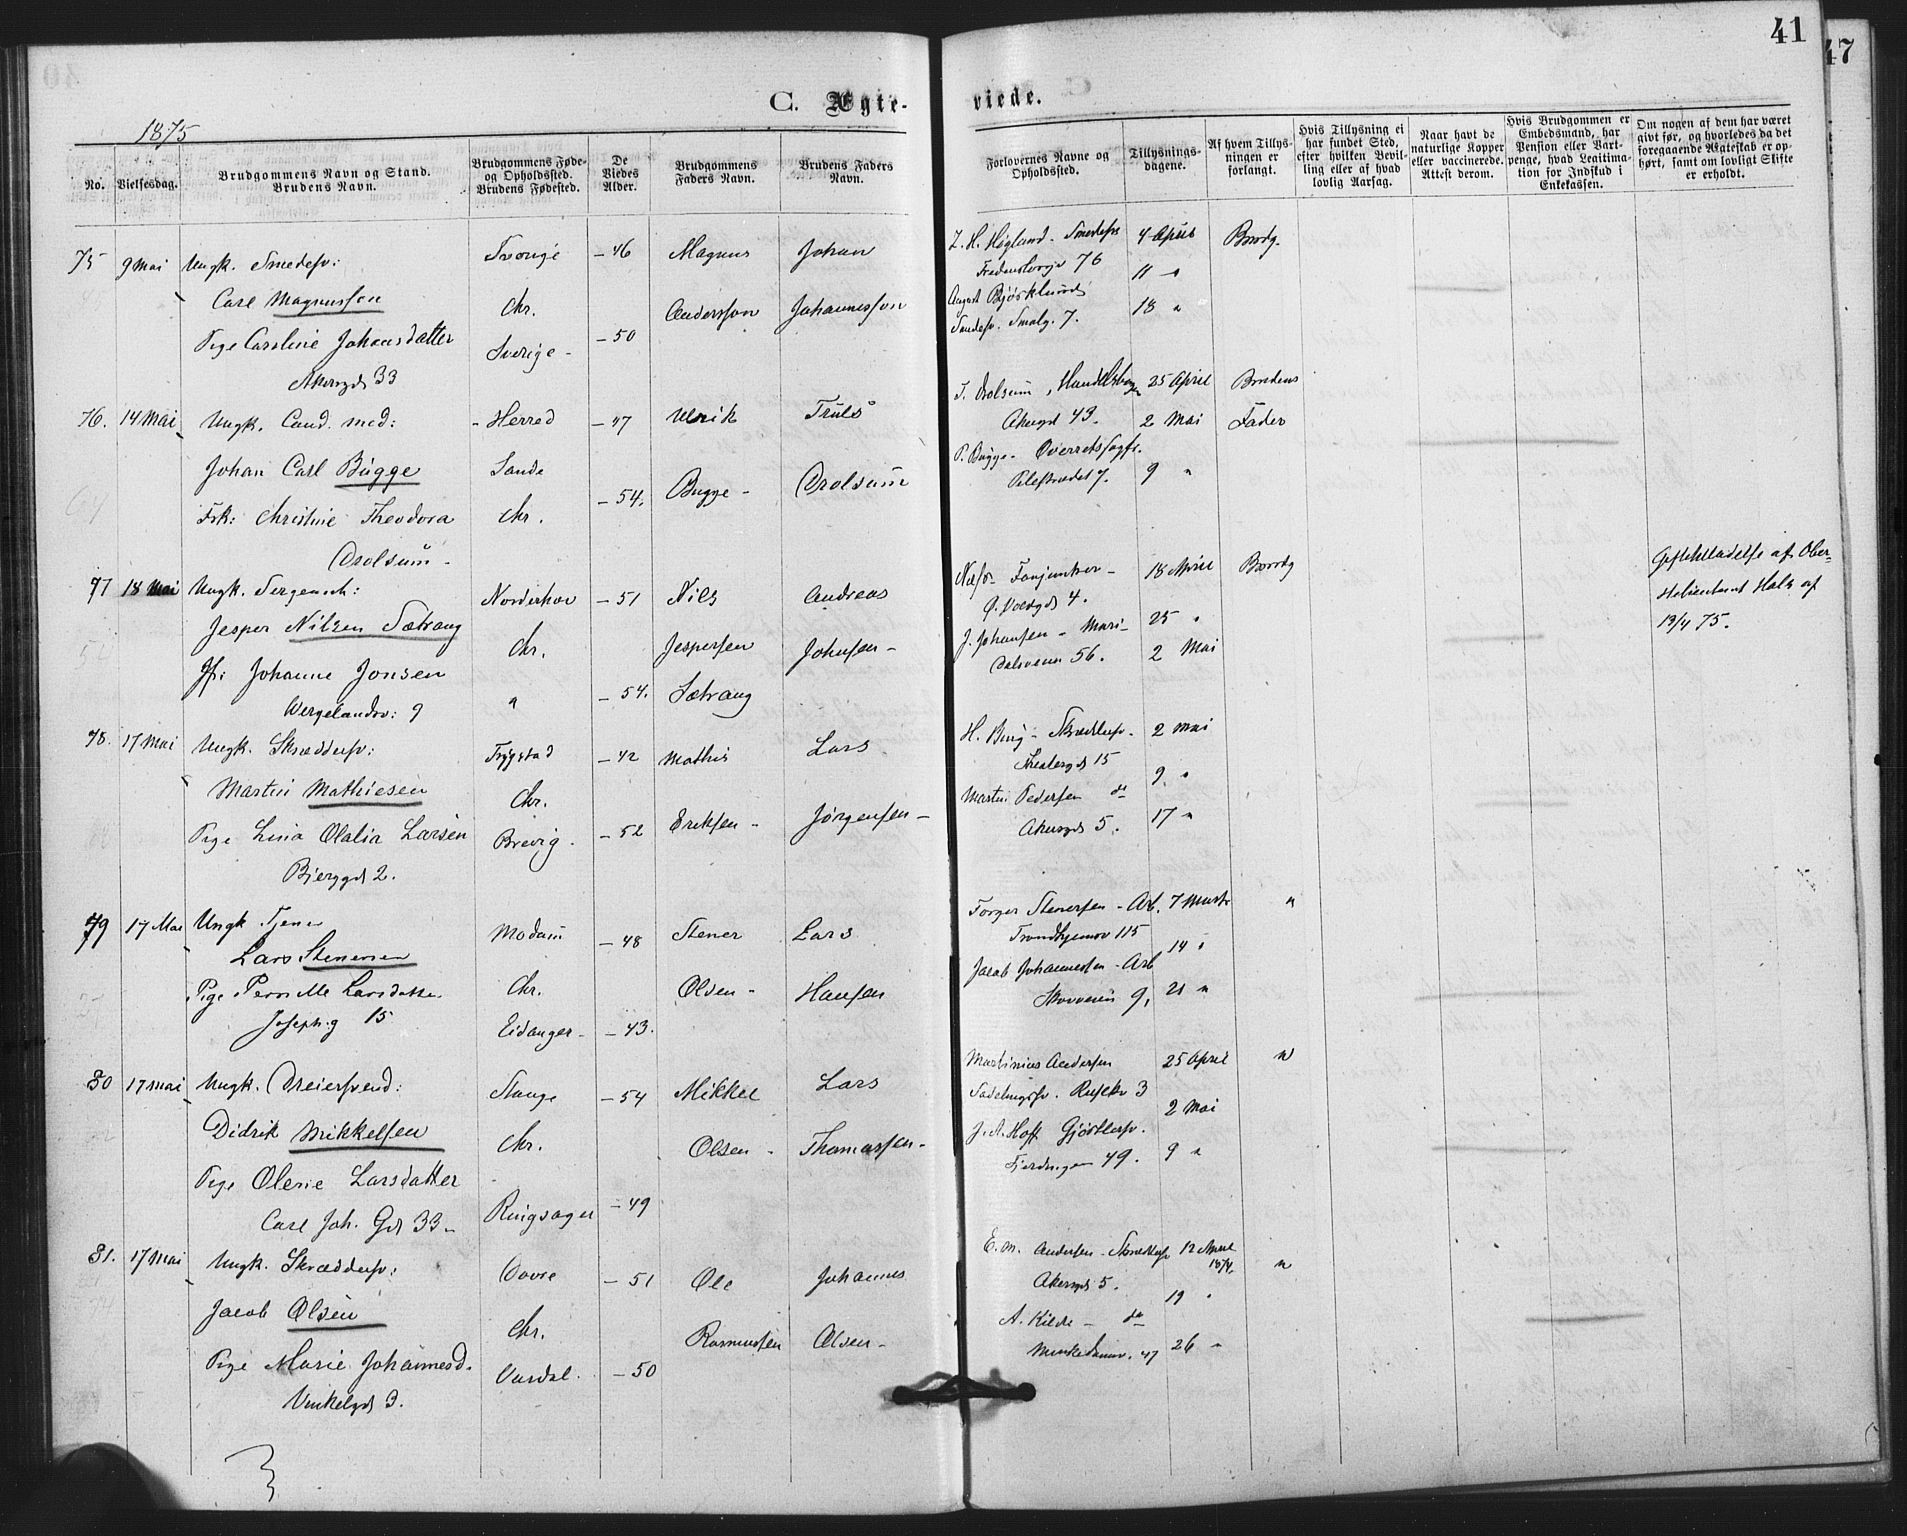 41
47
C. Ægte-
viede.
1875
No.
Vielsesdag.
Brudgommens Navn og Stand.
Brudens Navn.
Brudgommens Føde-
og Opholdssted.
Brudens Fødested.
De
Viedes
Alder.
Brudgommens
Faders Navn.
Brudens Faders
Navn.
Forlovernes Navne og
Opholdssted.
Tillysnings-
dagene.
Af hvem Tillys-
ningen er
forlangt.
Hvis Tillysning ei
har fundet Sted,
efter hvilken Bevil-
ling eller af hvad
lovlig Aarsag.
Naar havt de
naturlige Kopper
eller vaccinerede.
Attest derom.
Hvis Brudgommen er
Embedsmand, har
Pension eller Vart-
penge, hvad Legitima-
tion for Indskud i
Enkekassen.
Om nogen af dem har været
givt før, og hvorledes da det
foregaaende Ægteskab er op-
hørt, samt om lovligt Skifte
er erholdt.
75 9 Mai Ungk. Smedesv: Sverige - 46 Magnus Johan
Carl Magnusson Chr. Andersson Johannesson
Pige Caroline Johansdatter Sverige - - 50
Akersgd 33
Høgland - Smedesv 4 April Brudg.
76 11 "
August Bjørklund 18 "
Smedesv. Smalg. 7.
76. 14 Mai Ungk. Cand. med: - Herred - 47 Ulrik Truls
Johan Carl Bugge Sande Bugge - Drolsum
Frk: Christine Theodora Chr. - 54.
Drolsum -
Drolsum, Handelsborger 25 April Brudens
Akersgd 43. 2 Mai Fader
P. Bugge - Overretssagfr. 9 "
Pilestrædet 7.
77 18 Mai Ungk. Sergeant: Norderhov - 51 Nils Andreas
Jesper Nilsen Sætrang Chr. Jespersen Johnsen -
Jfr: Johanne Jonsen " - 54. Sætrang
Wergelandsv: 9
Næss - Fanjunker - 18 April Brudg
Ø. Voldgd 4. 25 "
J. Johansen - Mari- 2 Mai
dalsveien 56.
Giftetilladelse af Ober-
stlieutenant Hals af
13/4 75.
78. 17 Mai Ungk. Skræddersv: Trygstad - 42 Mathis Lars
Martin Mathiesen Chr. Eriksen - Jørgensen -
Pige Lina Olalia Larsen Brevig - - 52
Bjerggd 2.
H. Berg - Skræddersv. 2 Mai
Theatergd 15 9. "
Martin Pedersen do 17 "
Akersgd 5.
79 17 Mai Ungk Tjener Modum - 48 Stener Lars
Lars Stenersen Chr. Olsen - Hansen
Pige Pernille Larsdatter. Eidanger - - 43.
Josephg 15
Torger Stenersen - Arb. 7 Marts "
Trondhjemsv 115 14 "
Jacob Johannesen - Arb 21 "
Skovveien 9,
80 17 Mai Ungk. Dreiersvend: Stange - 54 Mikkel Lars
Didrik Mikkelsen Chr. Olsen - Thomassen -
Pige Olene Larsdatter Ringsager - 49
Carl Joh. Gd 33 -
Martinius Andersen 25 April "
3 2 Mai
J. A. Hoff Gjørtlersv. 9 "
Fjerdingen 49.
81. 17 Mai Ungk. Skræddersv: Dovre - 51 Ole Johannes
Jacob Olsen Chr. Rasmussen Olsen -
Pige Marie Johannesd. Vardal. - 50
Vinkelgd 3.
E. M. Andersen - Skræddersv 12 April 1874. "
Akersgd 5. 19 "
A. Kilde - do 26 "
Munkedamsv. 47